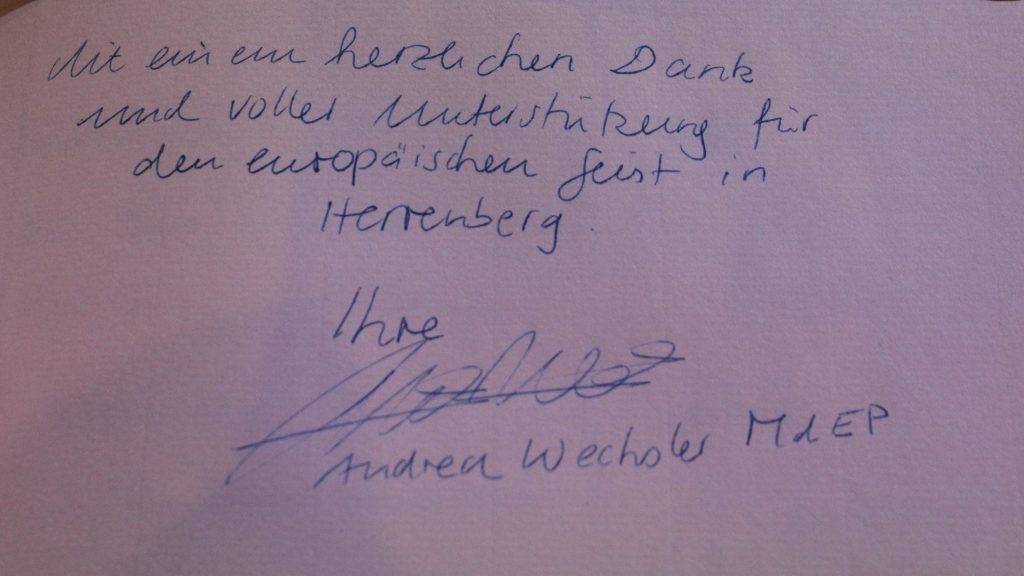 Mit einem herzlichen Dank
und voller Unterstützung für
den europäischen Geist in
Herrenberg.
Ihre
Andrea Wechsler MdEP